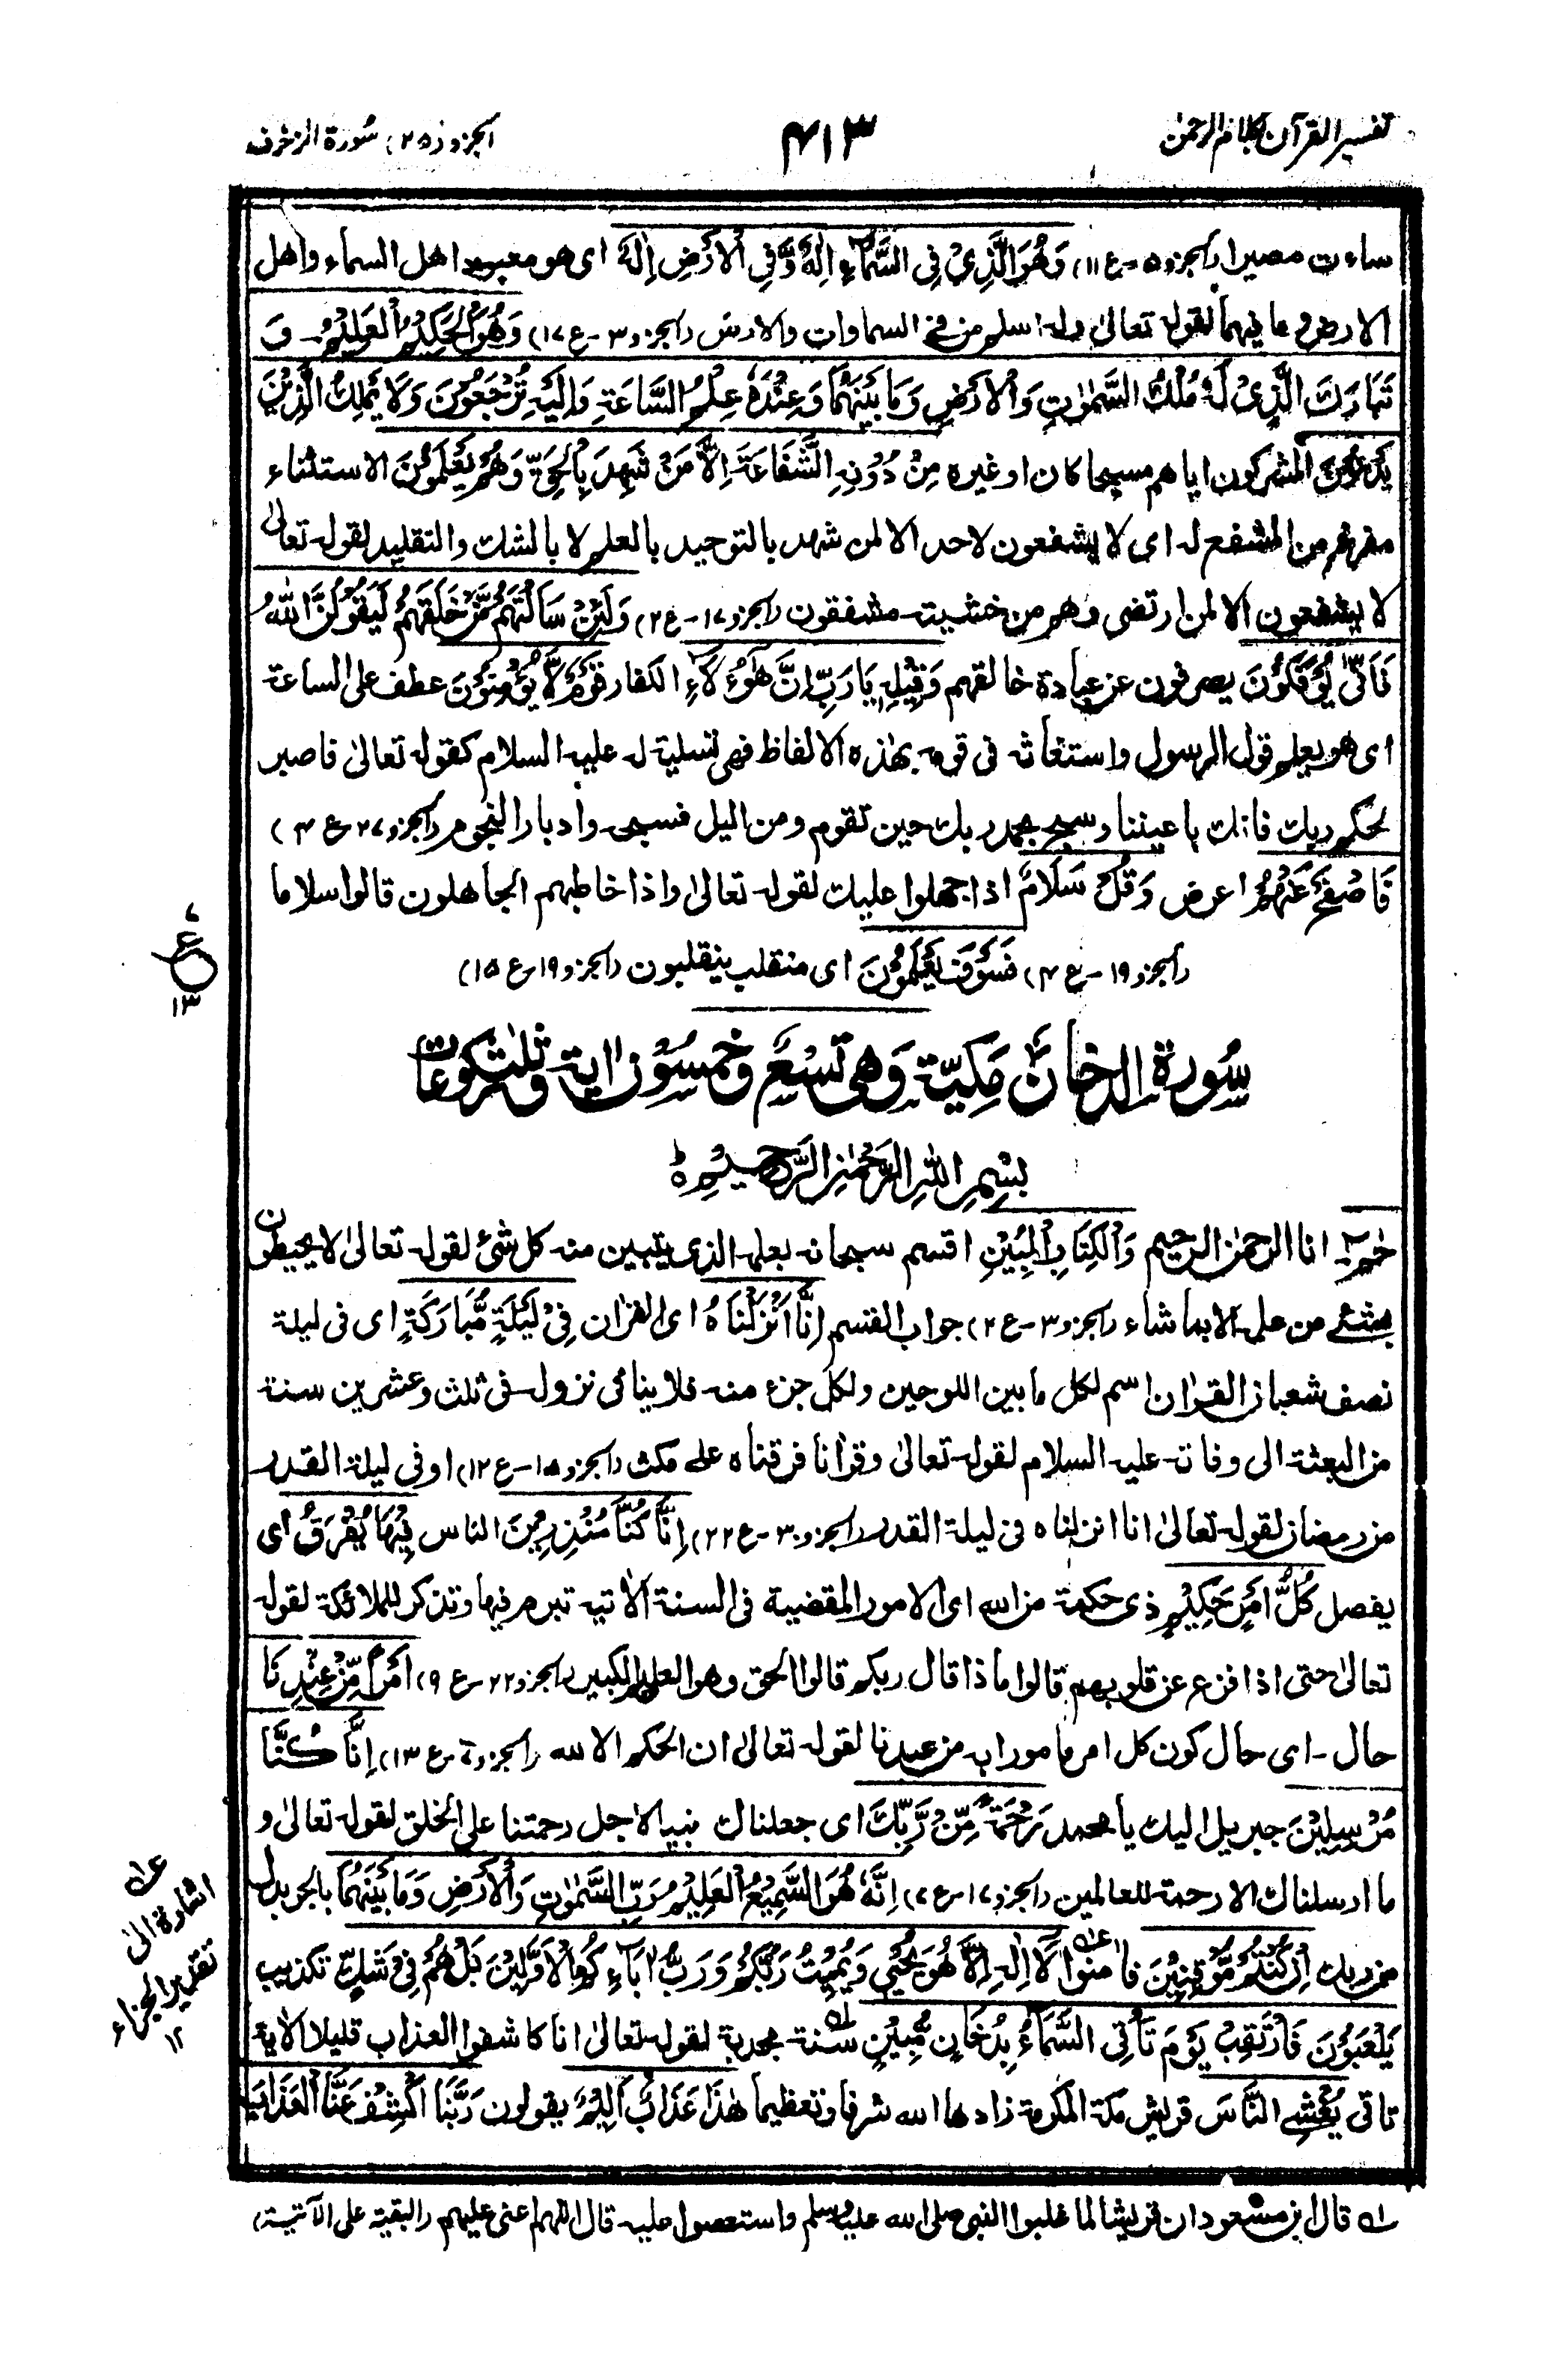 تفسیر القرآن بکلام الرحمٰن
۴۱۳
الجزو (۲۵) سُورة الزخرف
ساءت مصیرا (الجزو ۵-ع ۱۱) وَهُوَ الَّذِیْ فِی السَّمَآءِ اِلٰهٌ وَّفِی الْاَرْضِ اِلٰهٌ ای هو معبود اهل السماء واهل
الارض وما فیهما لقوله تعالیٰ وله اسلم من فی السماوات والارض (الجزو ۳-ع ۱۷) وَهُوَ الْحَکِیْمُ الْعَلِیْمُ۔ وَ
تَبَارَكَ الَّذِیْ لَهٗ مُلْكُ السَّمٰوٰتِ وَالْاَرْضِ وَمَا بَیْنَهُمَا وَعِنْدَهٗ عِلْمُ السَّاعَةِ وَاِلَیْهِ تُرْجَعُوْنَ وَلَا یَمْلِكُ الَّذِیْنَ
یَدْعُوْنَ المشرکون ایاهم مسیحا کان او غیره مِنْ دُوْنِهِ الشَّفَاعَةَ اِلَّا مَنْ شَهِدَ بِالْحَقِّ وَهُمْ یَعْلَمُوْنَ الاستثناء
مفرغ من المشفع له ای لا یشفعون لاحد الا لمن شهد بالتوحید بالعلم لا بالشك والتقلید لقوله تعالیٰ
لا یشفعون الا لمن ارتضی وهم من خشیته مشفقون (الجزو ۱۷-ع ۲) وَلَئِنْ سَاَلْتَهُمْ مَّنْ خَلَقَهُمْ لَیَقُوْلُنَّ اللّٰهُ
فَاَنّٰی یُؤْفَکُوْنَ یصرفون عن عبادة خالقهم وَقِیْلِهٖ یَارَبِّ اِنَّ هٰؤُلَآءِ الکفار قَوْمٌ لَّا یُؤْمِنُوْنَ عطف علی الساعة
ای هو یعلم قول الرسول واستغاثه فی قومه بهذه الالفاظ فهی تسلیة له علیه السلام کقوله تعالیٰ فاصبر
لحکم ربك فانك باعیننا وسبح بحمد ربك حین تقوم ومن الیل فسبحه وادبار النجوم (الجزو ۲۷-ع ۴)
فَاصْفَحْ عَنْهُمْ اعرض وَقُلْ سَلَامٌ اذا جهلوا علیك لقوله تعالیٰ واذا خاطبهم الجاهلون قالوا سلاما
(الجزو ۱۹-ع ۴) فَسَوْفَ یَعْلَمُوْنَ ای منقلب ینقلبون (الجزو ۱۹-ع ۱۵)
۷
ع
۱۳
سُورة الدخان مَکیّة وَهی تسْعٌ وخمسُوْن اٰیة وثلٰث رکوعات
بِسْمِ اللّٰهِ الرَّحْمٰنِ الرَّحِیْمِ
حٰمٓ انا الرحمٰن الرحیم وَالْکِتَابِ الْمُبِیْنِ اقسم سبحانه بعلمه الذی یتبین منه کل شئ لقوله تعالیٰ لا یحیطون
بشئ من علمه الا بما شاء (الجزو ۳-ع ۲) جواب القسم اِنَّا اَنْزَلْنَاهُ ای القراٰن فِیْ لَیْلَةٍ مُّبَارَکَةٍ ای فی لیلة
نصف شعبان القراٰن اسم لکل ما بین اللوحین ولکل جزء منه فلا ینافی نزوله فی ثلث وعشرین سنة
من البعثة الی وفاته علیه السلام لقوله تعالیٰ وقراٰنا فرقناه علی مکث (الجزو ۱۵-ع ۱۲) او فی لیلة القدر
من رمضان لقوله تعالیٰ انا انزلناه فی لیلة القدر (الجزو ۳۰-ع ۲۲) اِنَّا کُنَّا مُنْذِرِیْنَ الناس فِیْهَا یُفْرَقُ ای
یفصل کُلُّ اَمْرٍ حَکِیْمٍ ذی حکمة من الله ای الامور المقضیة فی السنة الاٰتیه تبرم فیها وتذکر للملائکة لقوله
تعالیٰ حتی اذا فزع عن قلوبهم قالوا ماذا قال ربکم قالوا الحق وهو العلی الکبیر (الجزو ۲۲-ع ۹) اَمْرًا مِّنْ عِنْدِنَا
حال۔ ای حال کون کل امر مامورا به من عندنا لقوله تعالیٰ ان الحکم الا لله (الجزو ۷-ع ۱۳) اِنَّا کُنَّا
مُرْسِلِیْنَ جبریل الیك یا محمد رَحْمَةً مِّنْ رَّبِّكَ ای جعلناك نبیا لاجل رحمتنا علی الخلق لقوله تعالیٰ و
ما ارسلناك الا رحمة للعالمین (الجزو ۱۷-ع ۷) اِنَّهٗ هُوَ السَّمِیْعُ الْعَلِیْمُ رَبِّ السَّمٰوٰتِ وَالْاَرْضِ وَمَا بَیْنَهُمَا بالجر بدل
من ربك اِنْ کُنْتُمْ مُّوْقِنِیْنَ فاٰمنوا لَا اِلٰهَ اِلَّا هُوَ یُحْیِیْ وَیُمِیْتُ رَبُّکُمْ وَرَبُّ اٰبَآءِکُمُ الْاَوَّلِیْنَ بَلْ هُمْ فِیْ شَكٍّ تکذیب
یَلْعَبُوْنَ فَارْتَقِبْ یَوْمَ تَاْتِی السَّمَآءُ بِدُخَانٍ مُّبِیْنٍ سنة مجدبة لقوله تعالیٰ انا کاشفوا العذاب قلیلا الاٰیة
تاتی یَغْشَی النَّاسَ قریش مکة المکرمة زادها الله شرفا وتعظیما هٰذَا عَذَابٌ اَلِیْمٌ یقولون رَبَّنَا اکْشِفْ عَنَّا الْعَذَابَ
اشارة الیٰ
تقدیر الجزاء
۱۲
قال ابن مسعود ان قریشا لما غلبوا النبی صلی الله علیه وسلم واستعصوا علیه قال اللهم اعنی علیهم (البقیة علی الآتیة)